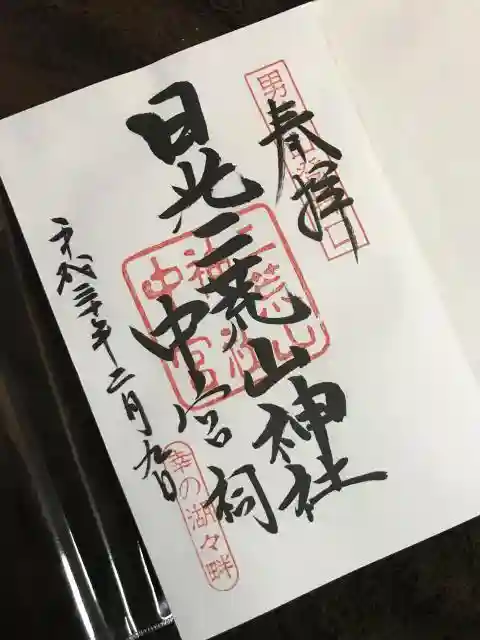 奉拝
日光二荒山神社
中宮祠
二荒山神社中宮
平成三十年二月九日
幸の湖々畔